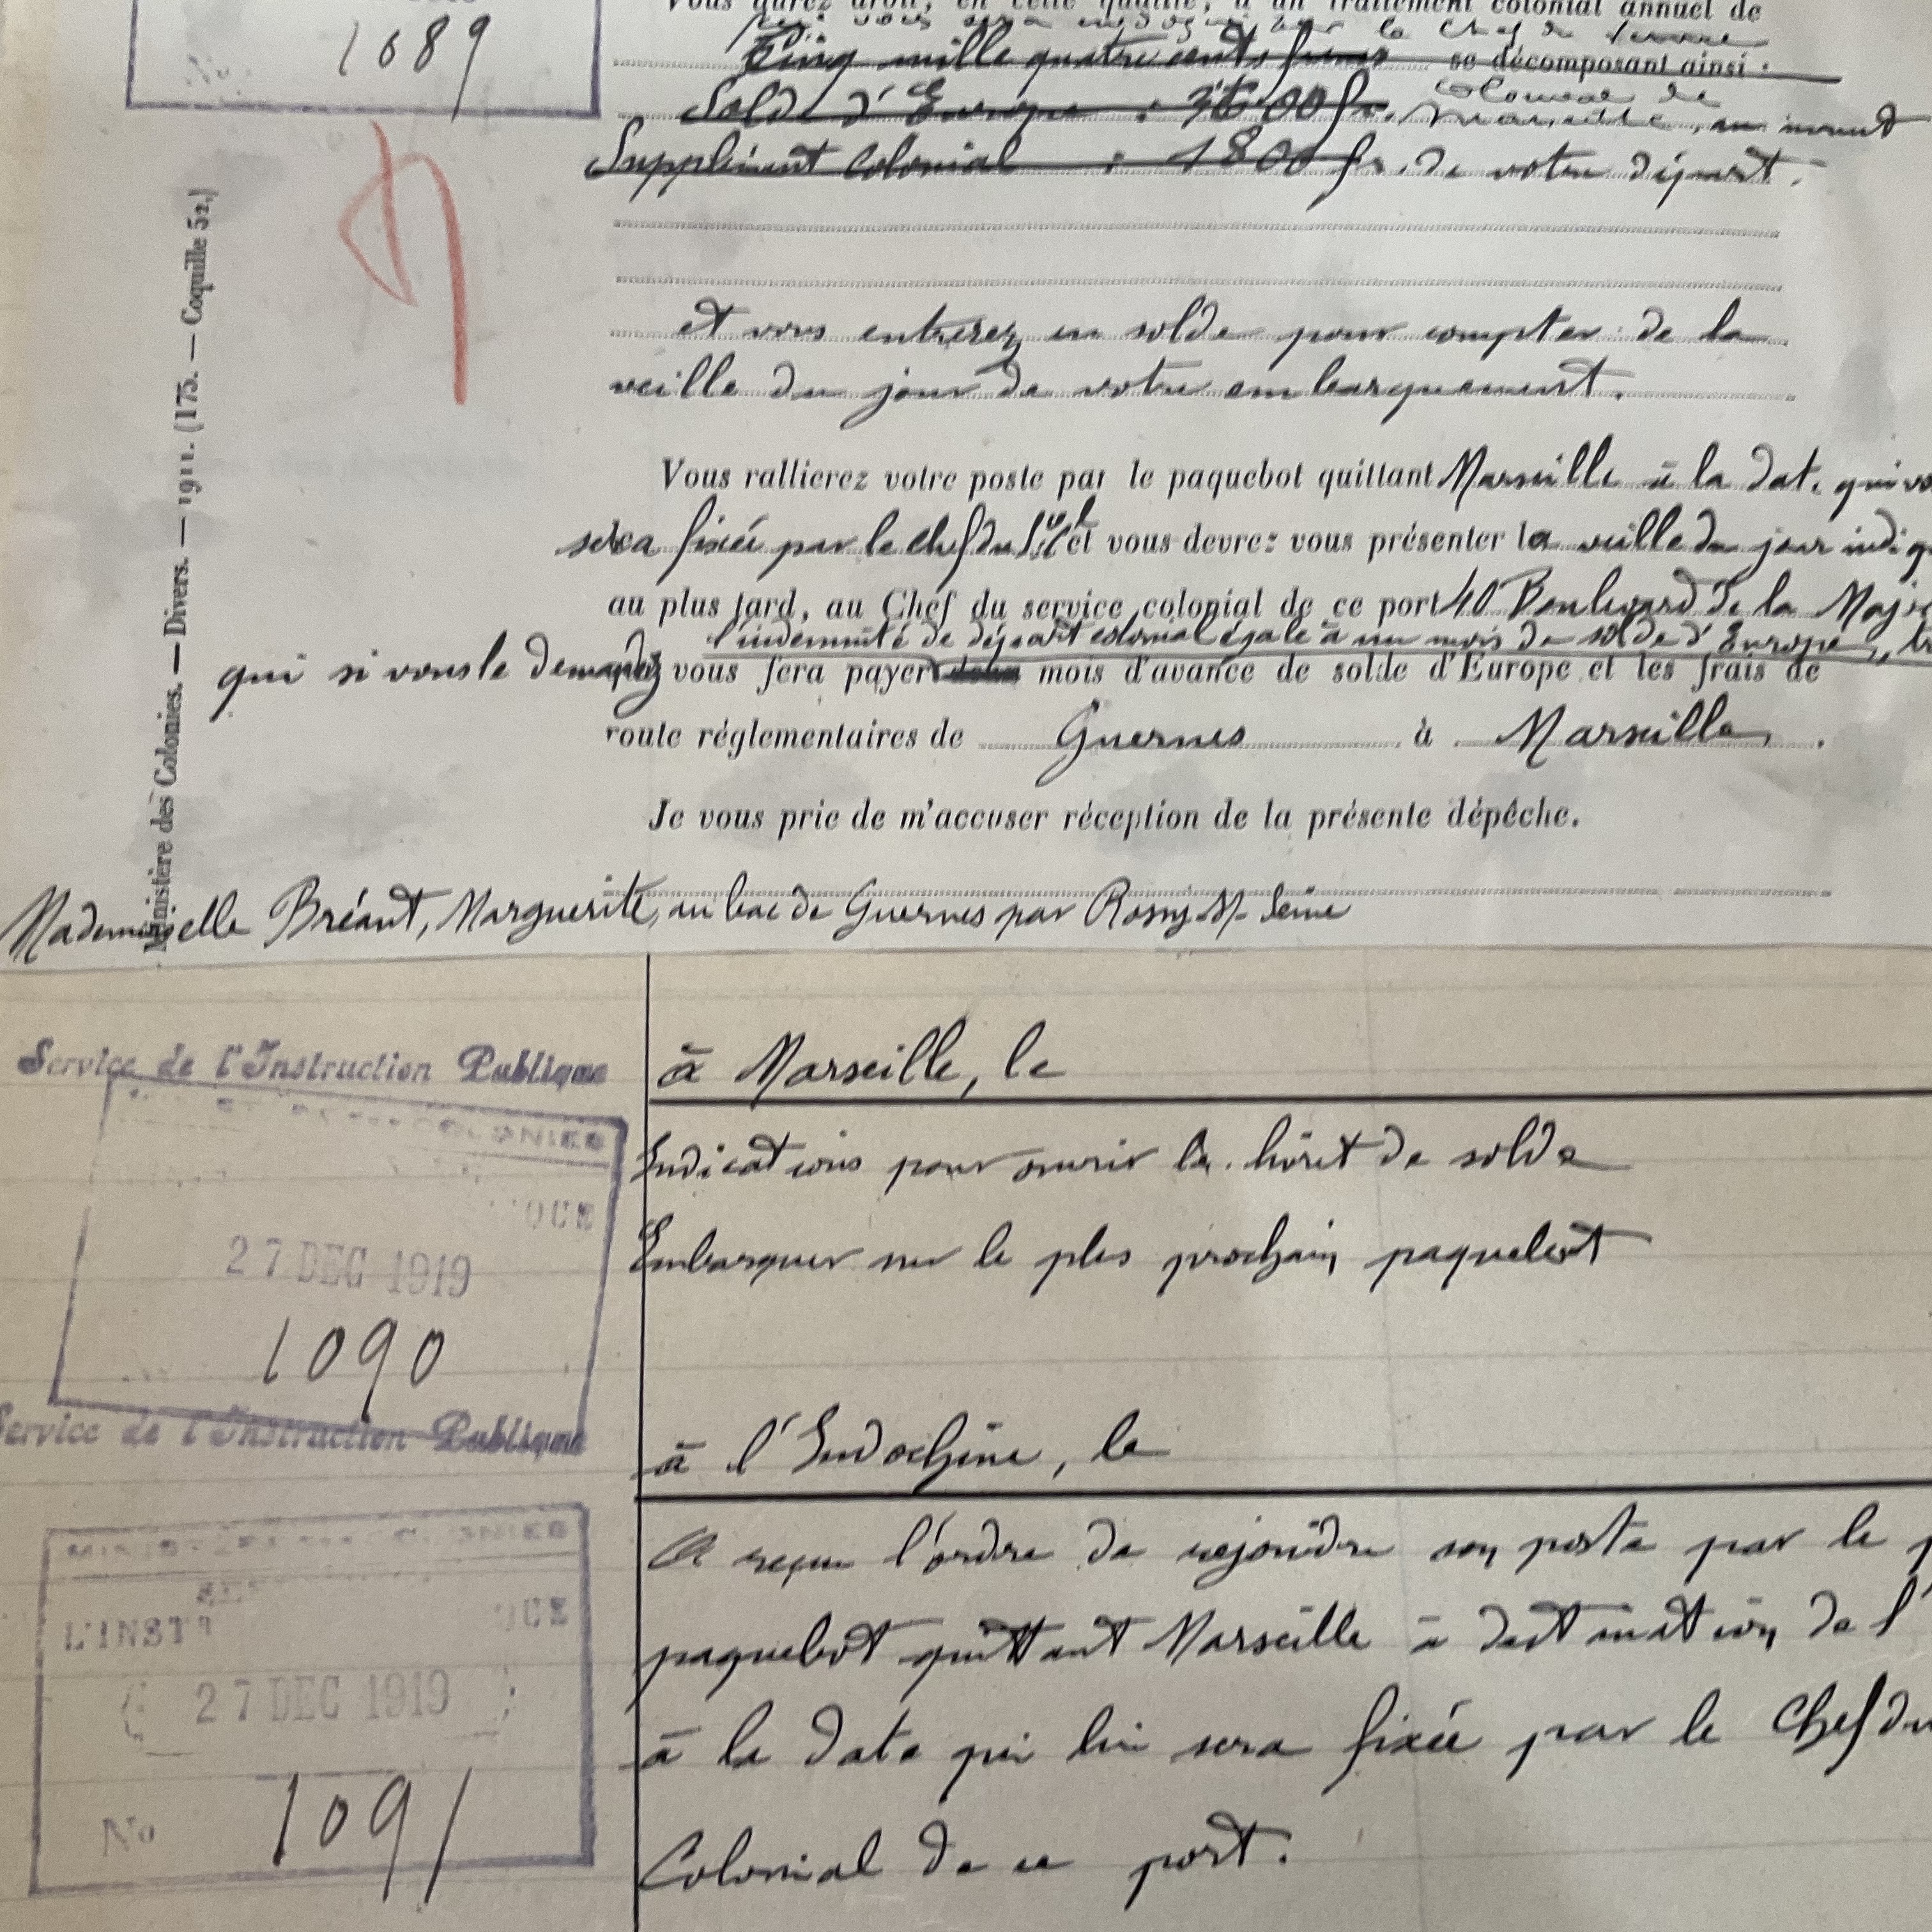 1089
Vous aurez droit, en cette qualité, à un traitement colonial annuel de
qui vous sera indiqué par le Chef du Service
Cinq mille quatre cents francs se décomposant ainsi :
Solde d'Europe : 3600 fr. Colonial de
Marseille, au moment
Supplément Colonial : 1800 fr. de votre départ.
et vous entrerez en solde pour compter de la
veille du jour de votre embarquement.
Vous rallierez votre poste par le paquebot quittant Marseille à la date qui
sera fixée par le chef du et vous devrez vous présenter la veille du jour
au plus tard, au Chef du service colonial de ce port 40 Boulevard de la
l'indemnité de départ colonial égale à un mois de solde d'Europe,
qui si vous le demandez vous fera payer mois d'avance de solde d'Europe et les frais de
route réglementaires de Guernes à Marseille.
Je vous prie de m'accuser réception de la présente dépêche.
Mademoiselle Bréant, Marguerite, au bac de Guernes par Rosny s/ Seine
Ministère des Colonies. — Divers. — 1911. (175. — Coquille 52.)
Service de l'Instruction Publique
COLONIES
27 DEC 1919
1090
à Marseille, le
Indications pour ouvrir le livret de solde
Embarquer sur le plus prochain paquebot
Service de l'Instruction Publique
L'INST
27 DEC 1919
No 1091
à l'Indochine, le
A reçu l'ordre de rejoindre son poste par le
paquebot quittant Marseille à destination de l'
à la date qui lui sera fixée par le Chef du
Colonial de ce port.